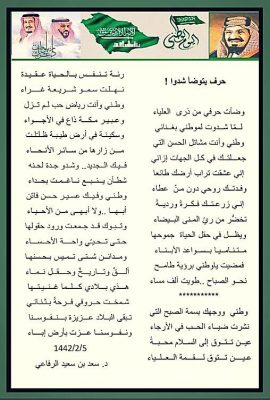 حرف يتوضأ شدوا !
وضأت حرفي من ذرى العلياء
لمّا شدوت لموطني بغنائي
وطني وأنت مشاتل الحسن التي
جعلتك في كل الجهات إزائي
إني عشقت تراب أرضك طائعا
وفدتك روحي دون منّ عطاء
إني زرعتك فكرة وردية
تخضرّ من ريّ المنى البيضاء
ويظل في حقل الحياة جموحها
متناميا بسواعد الأبناء
فمضيت ياوطني برؤية طامح
نحو الصباح ..طويت ألف مساء
***********
وطني ووجهك بسمة الصبح التي
نشرت ضياء الحب في الأرجاء
عين تتوق إلى السلام محبة
عين تتوق لقمة العلياء
رئة تنفس بالحياة عقيدة
نهلت سمو شريعة غراء
وطني وأنت رياض حب لم تزل
وعبير مكة ذاع في الأجواء
وسكينة في أرض طيبة ظللت
من زارها من سائر الأنحاء
فيك الجديد.. وشدو جدة لحنه
شطآن ينبع ناغمت بحداء
وطني وفيك عسير حسن فاتن
أبها ..ولا أبهى من الأحياء
وتبوك قد جمعت ورود حقولها
حتى تحيي واحة الأحساء
ومدائن شتى تميس بحسنها
ألق وتاريخ وحقل نماء
هذي بلادي كلما غنيتها
شمخت حروفي فرحة بثنائي
تبقى البلاد عزيزة بنفوسنا
ونفوسنا عزت بأرض إباء
1442/2/5
د. سعد بن سعيد الرفاعي